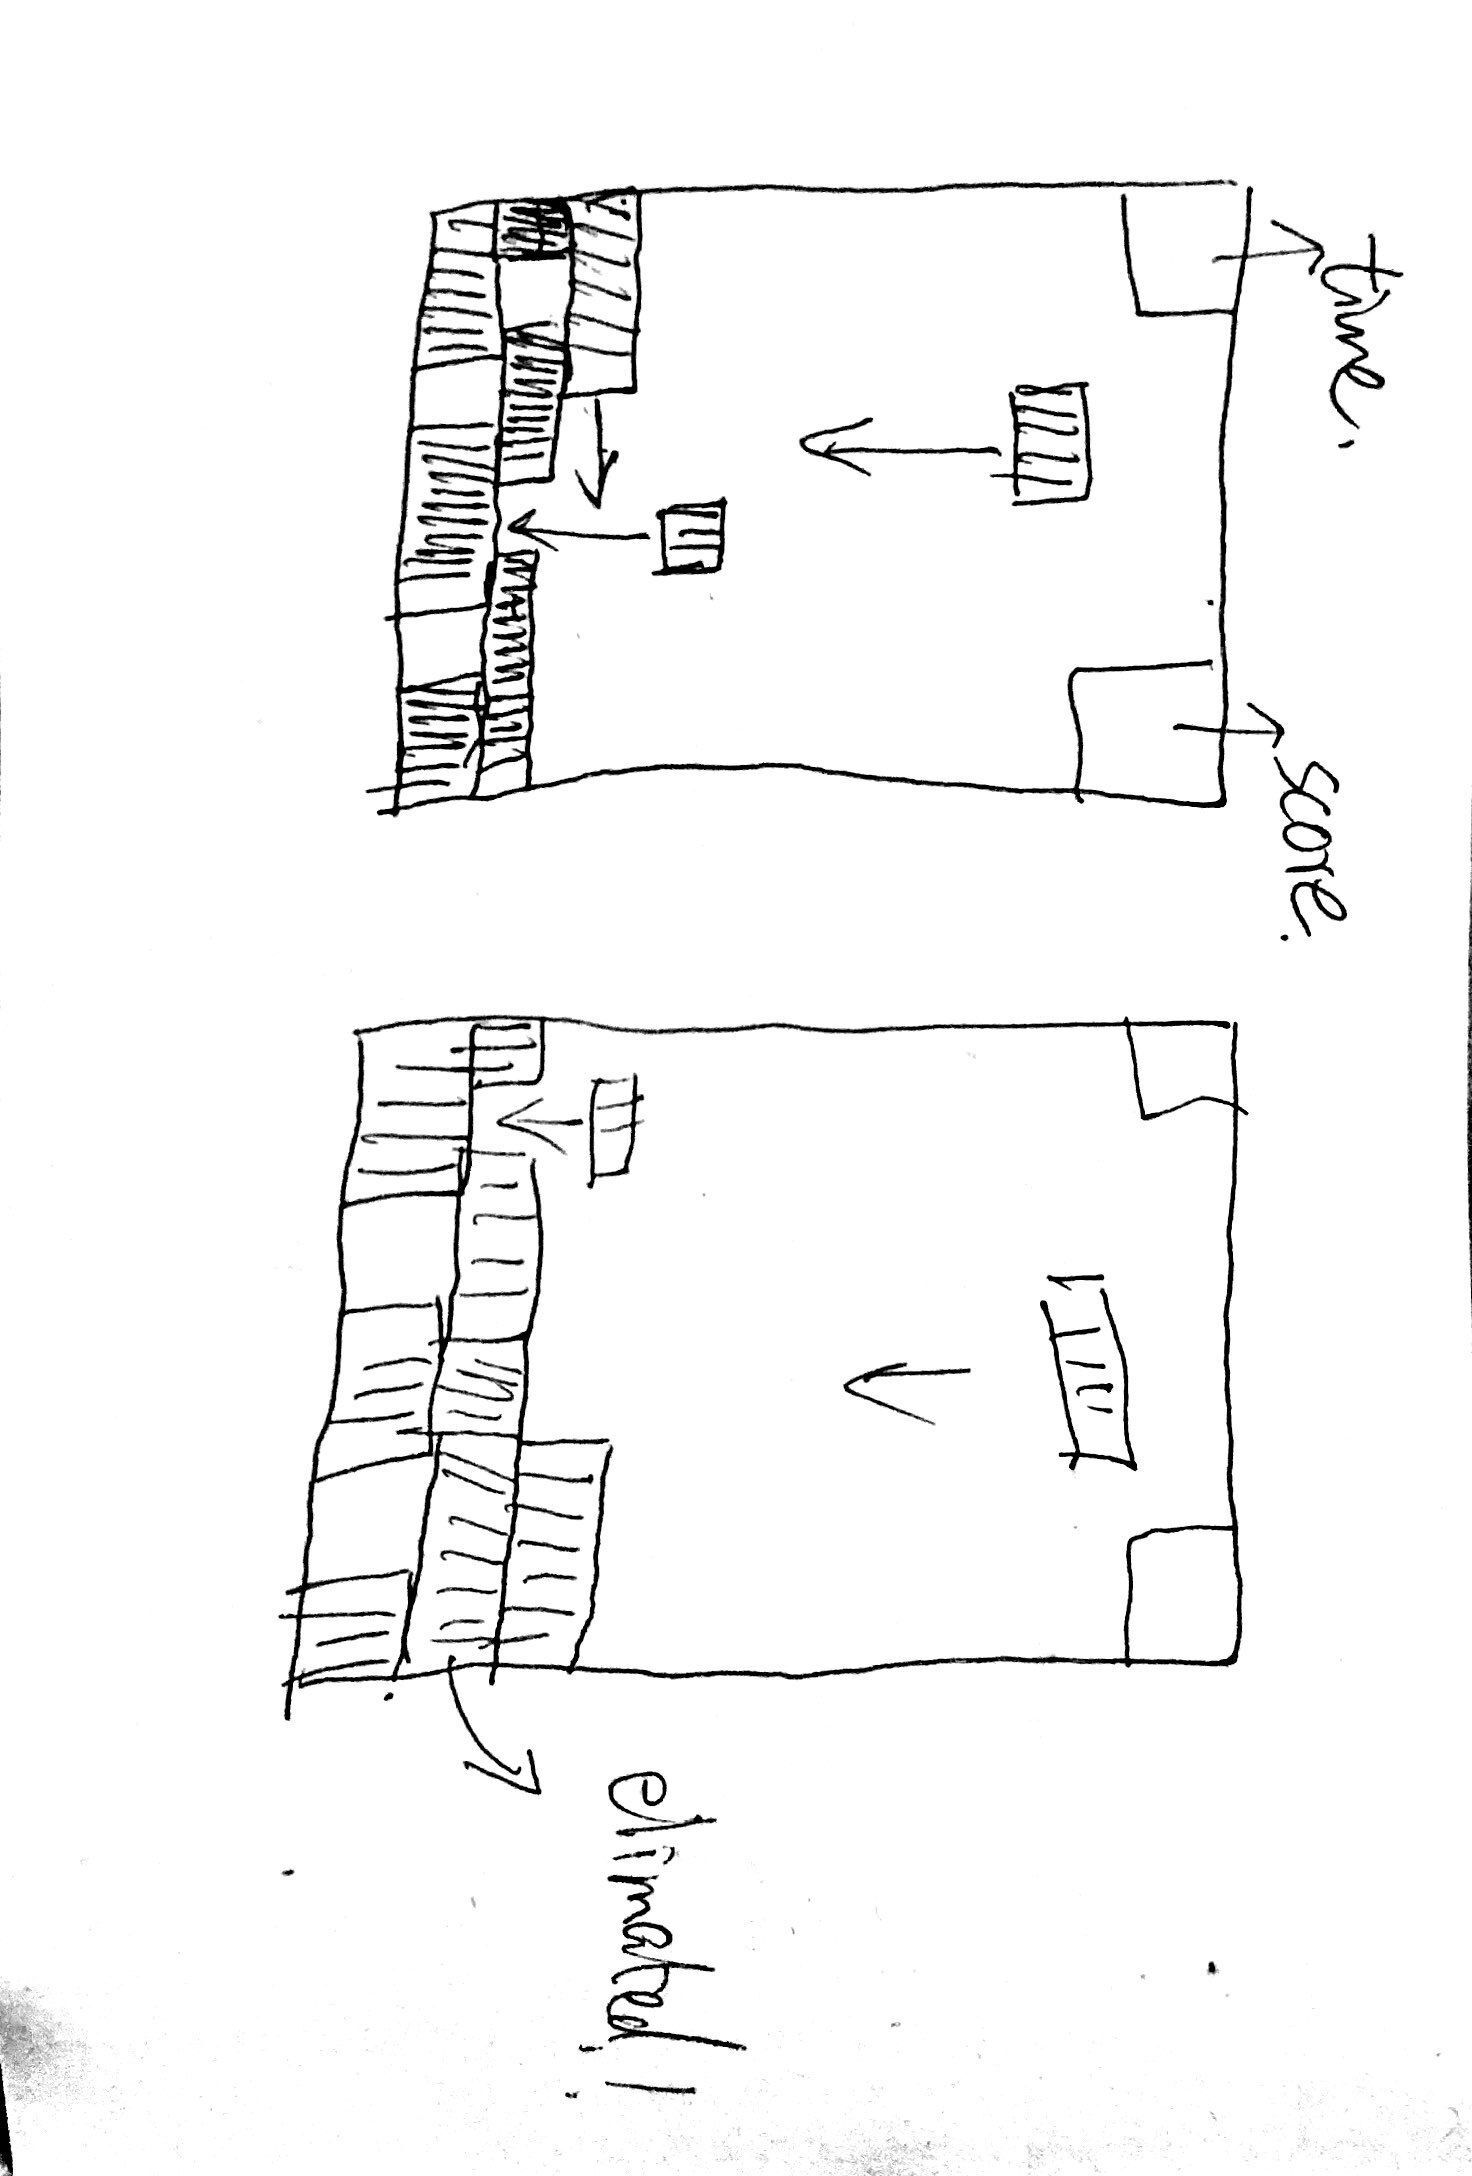 time.
score.
elimated!!